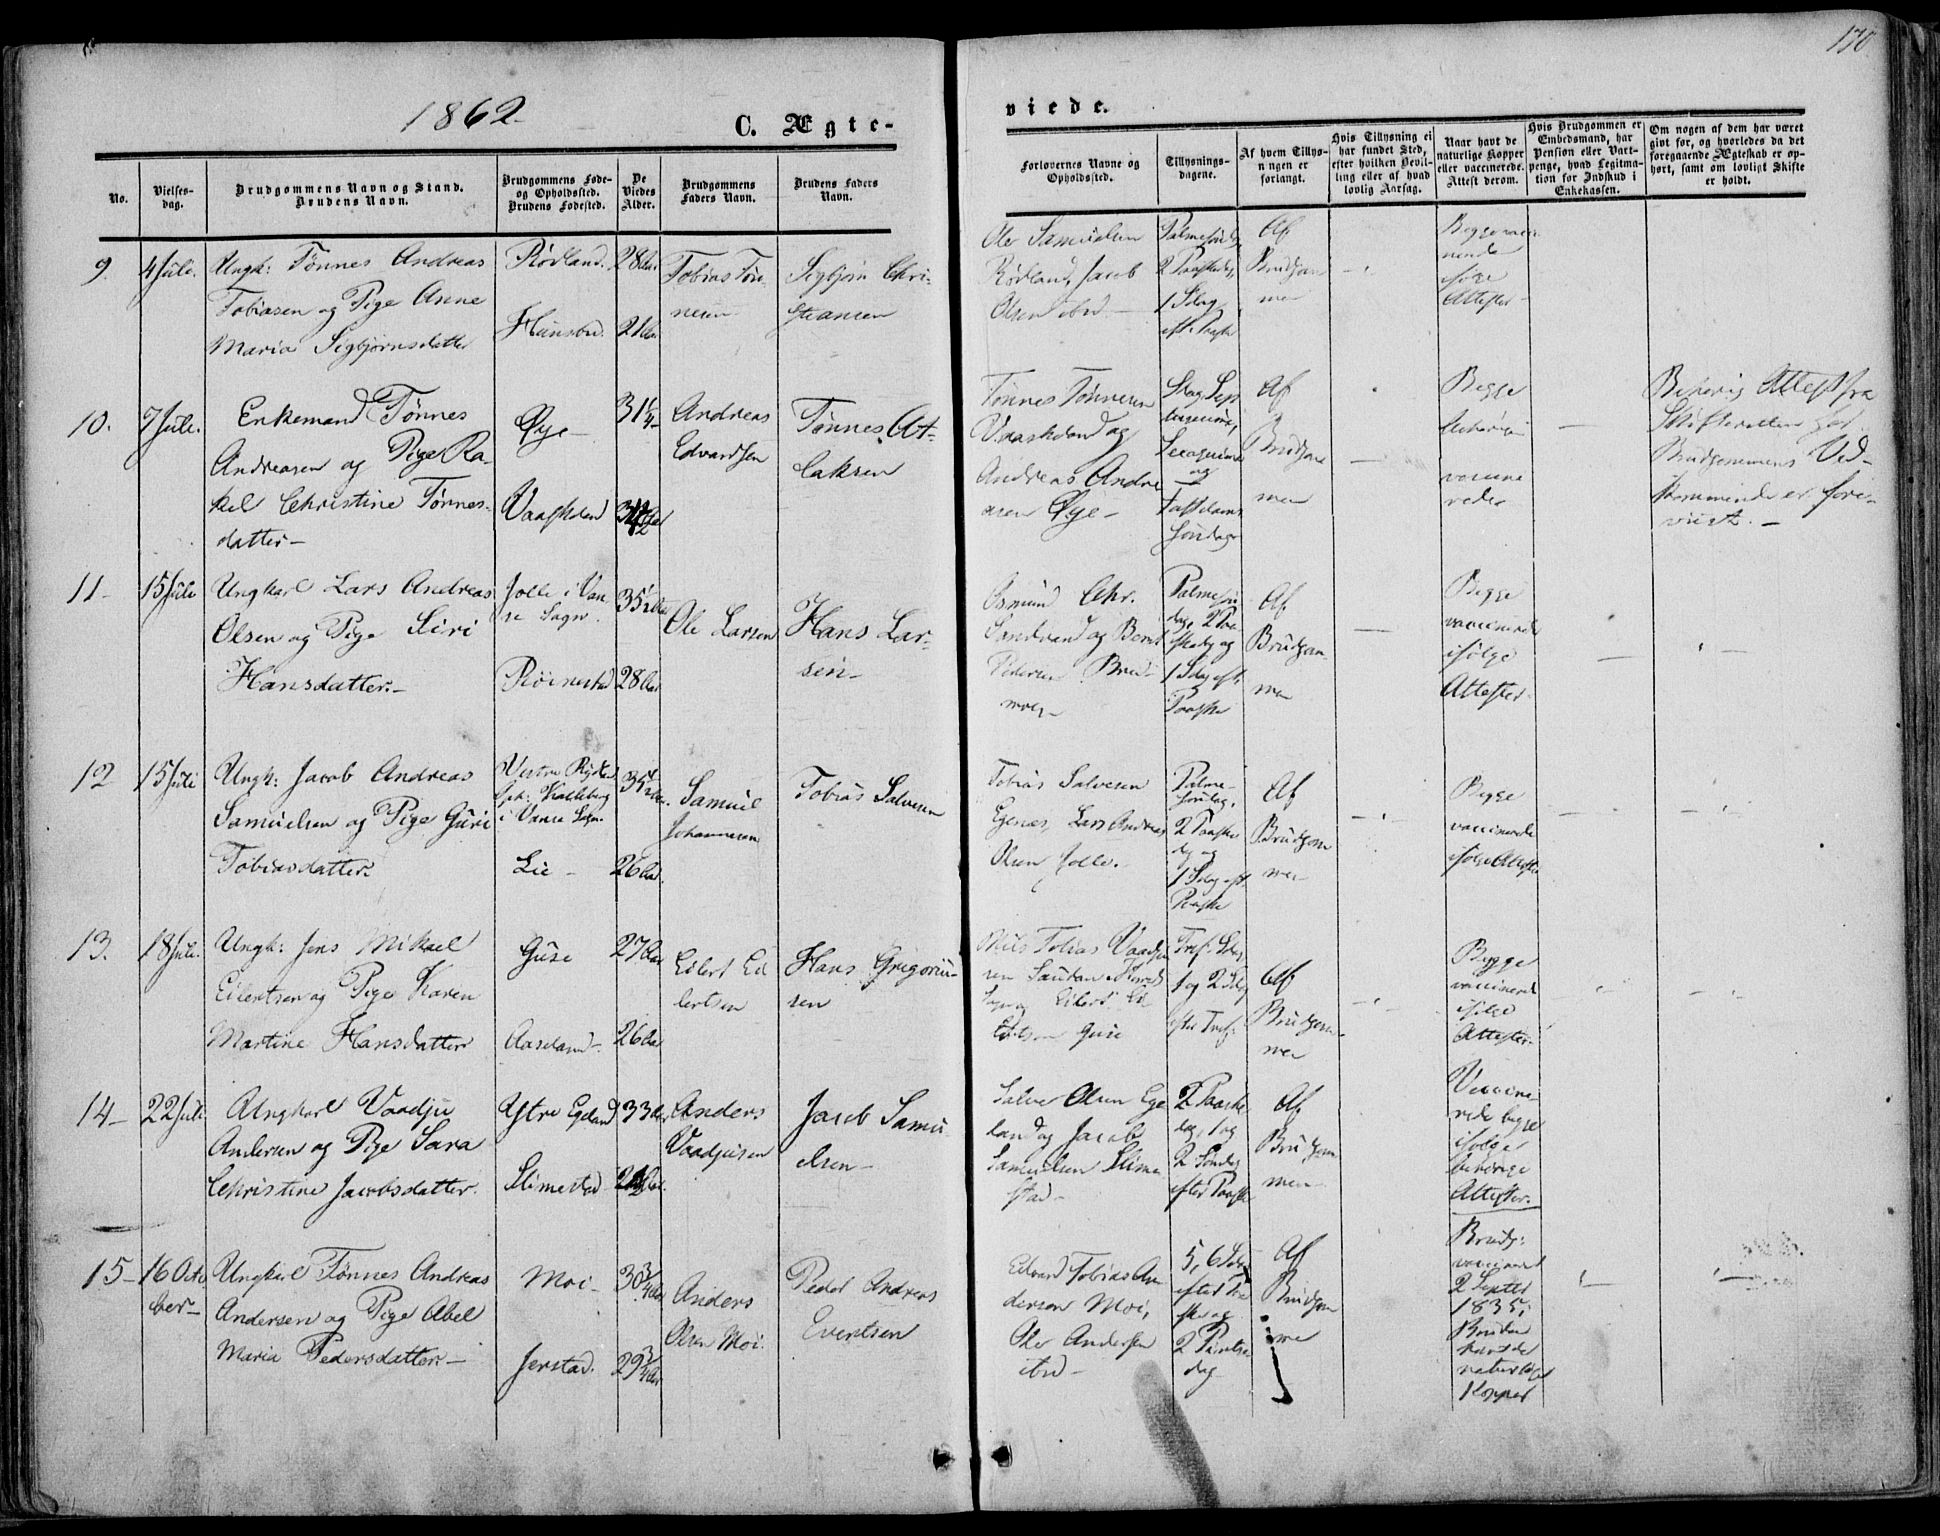 170
1862
C. Ægte-
viede.
No.
Vielses-
dag.
Brudgommens Navn og Stand.
Brudens Navn.
Brudgommens Føde-
og Opholdssted.
Brudens Fødested.
De
Viedes
Alder.
Brudgommens
Faders Navn.
Brudens Faders
Navn.
Forlovernes Navne og
Opholdssted.
Tillysnings-
dagene.
Af hvem Tillys-
ningen er
forlangt.
Hvis Tillysning ei
har fundet Sted,
efter hvilken Bevil-
ling eller af hvad
lovlig Aarsag.
Naar havt de
naturlige Kopper
eller vaccinerede.
Attest derom.
Hvis Brudgommen er
Embedsmand, har
Pension eller Vart-
penge, hvad Legitima-
tion for Indskud i
Enkekassen.
Om nogen af dem har været
givt før, og hvorledes da det
foregaaende Ægteskab er op-
hørt, samt om lovligt Skifte
er holdt.
9.
4 Juli.
Ungk: Tønnes Andreas
Tobiasen og Pige Anne
Maria Sigbjørnsdatter
Rødland.
28 Aar
21 Aar
Tobias Tøn-
nesen
Sigbjørn Chri-
stiansen
Ole Samuelsen
Rødland, Jacob
Olsen ibd.
Palmesøndag
2 Paaskedag,
1 Sdag
eft. Paaske
Af
Brudgom-
men
Begge vacci-
nerede
ifølge
Attester
10.
7 Juli.
Enkemand Tønnes
Andreasen og Pige Ra-
kel Christine Tønnes-
datter
Øye
31 1/4
Andreas
Edvardsen
Tønnes At-
laksen
Tønnes Tønnesen
og
Andreas Andre-
asen Øye
Sdag Sep-
tuagesima,
Sexagesima
og
Fastelavns
Søndage
Af
Brudgom-
men
Begge
vaccine-
rede
Attest fra
Skifteretten for
Brudgommens Ved-
kommende er fore-
viist.
11
15 Juli
Ungkarl Lars Andreas
Olsen og Pige Siri
Hansdatter.
Jolle i Van-
se Sogn.
Røinestad
35 1/2 Aar
28 Aar
Ole Larsen
Hans Lar-
sen
Osmund Chr.
Sandvand og Bernt
Pedersen
Palmesøn-
dag, 2 Paa-
skedag og
1 Sdag eft.
Paaske
Af
Brudgom-
men
Begge
vaccinerede
ifølge
Attester
12
15 Juli
Ungk: Jacob Andreas
Samuelsen og Pige Guri
Tobiasdatter.
Vestre
i Vanse Sogn
Lie
26 Aar.
Samuel
Johannesen
Tobias Salvesen
Tobias Salvesen
Egenes, Lars Andreas
Olsen Jolle.
Palme-
søndag,
2 Paaske
dg og
1 Sdag eft.
Paaske
Af
Brudgom
men
Begge
vaccinerede
ifølge Attester
13.
18 Juli.
Ungk: Jens Mikael
Eilertsen og Pige Karen
Martine Hansdatter
Guse
Aaseland
27 Aar
26 Aar
Eilert Ei-
lertsen
Hans Gregoriu-
sen
Nils Tobias
og Eilert Ei-
lertsen Guse
Tref. Sdag
1 og 2 Sdag
efter Tref:
Af
Brudgom-
men
Begge
vaccinerede
ifølge
Attester
14
22 Juli
Ungkarl Vaadju
Andersen og Pige Sara
Christine Jacobsdatter.
Ytre Egeland
Slimestad
33 Aar
Anders
Vaadjusen
Jacob Samu-
elsen
Salve Olsen Ege-
land og Jacob
Samuelsen Slime-
stad
2 Paaske
dag, 1 og
2 Søndag
efter Paaske
Af
Brudgom
men
Vaccine-
rede begge
ifølge
behørige
Attester.
15
16 Octo-
ber
Ungkarl Tønnes Andreas
Andersen og Pige Abel
Maria Pedersdatter
Moi
Jerstad.
30 3/4 Aar
29 3/4 Aar
Anders
Olsen Moi.
Peder Andreas
Evertsen
Edvard Tobias An-
dersen Moi,
Ole Andersen
ibd
5, 6 Sdag
efter Paa-
ske og
2 Pintse-
dag
Af
Brudgom
men
Brudg:
vaccineret
2 Septbr
1835,
Bruden
havde
naturlige
Kopper